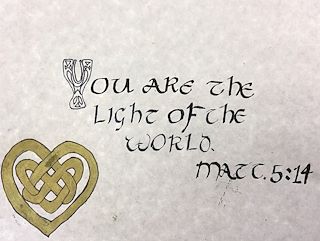 You are the
Light of the
World.
Matt. 5:14